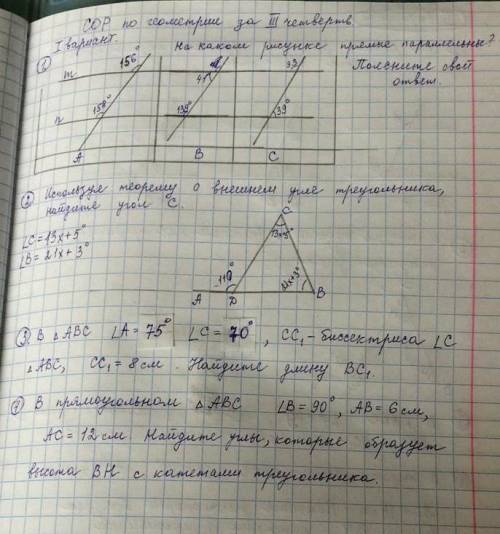 СОР по геометрии за III четверть.
I вариант.
① На каком рисунке прямые параллельны?
Поясните свой
ответ.
m 156°
n 158°
A
139°
B
39°
C
② Используя теорему о внешнем угле треугольника,
найдите угол C.
∠C=13x+5°
∠B=21x+3°
C
13x+5°
110°
21x+3°
A D B
③ В △ABC ∠A=75° ∠C=70°, CC₁-биссектриса ∠C
△ABC, CC₁=8см. Найдите длину BC₁.
④ В прямоугольном △ABC ∠B=90°, AB=6см,
AC=12см. Найдите углы, которые образует
высота BH с катетами треугольника.